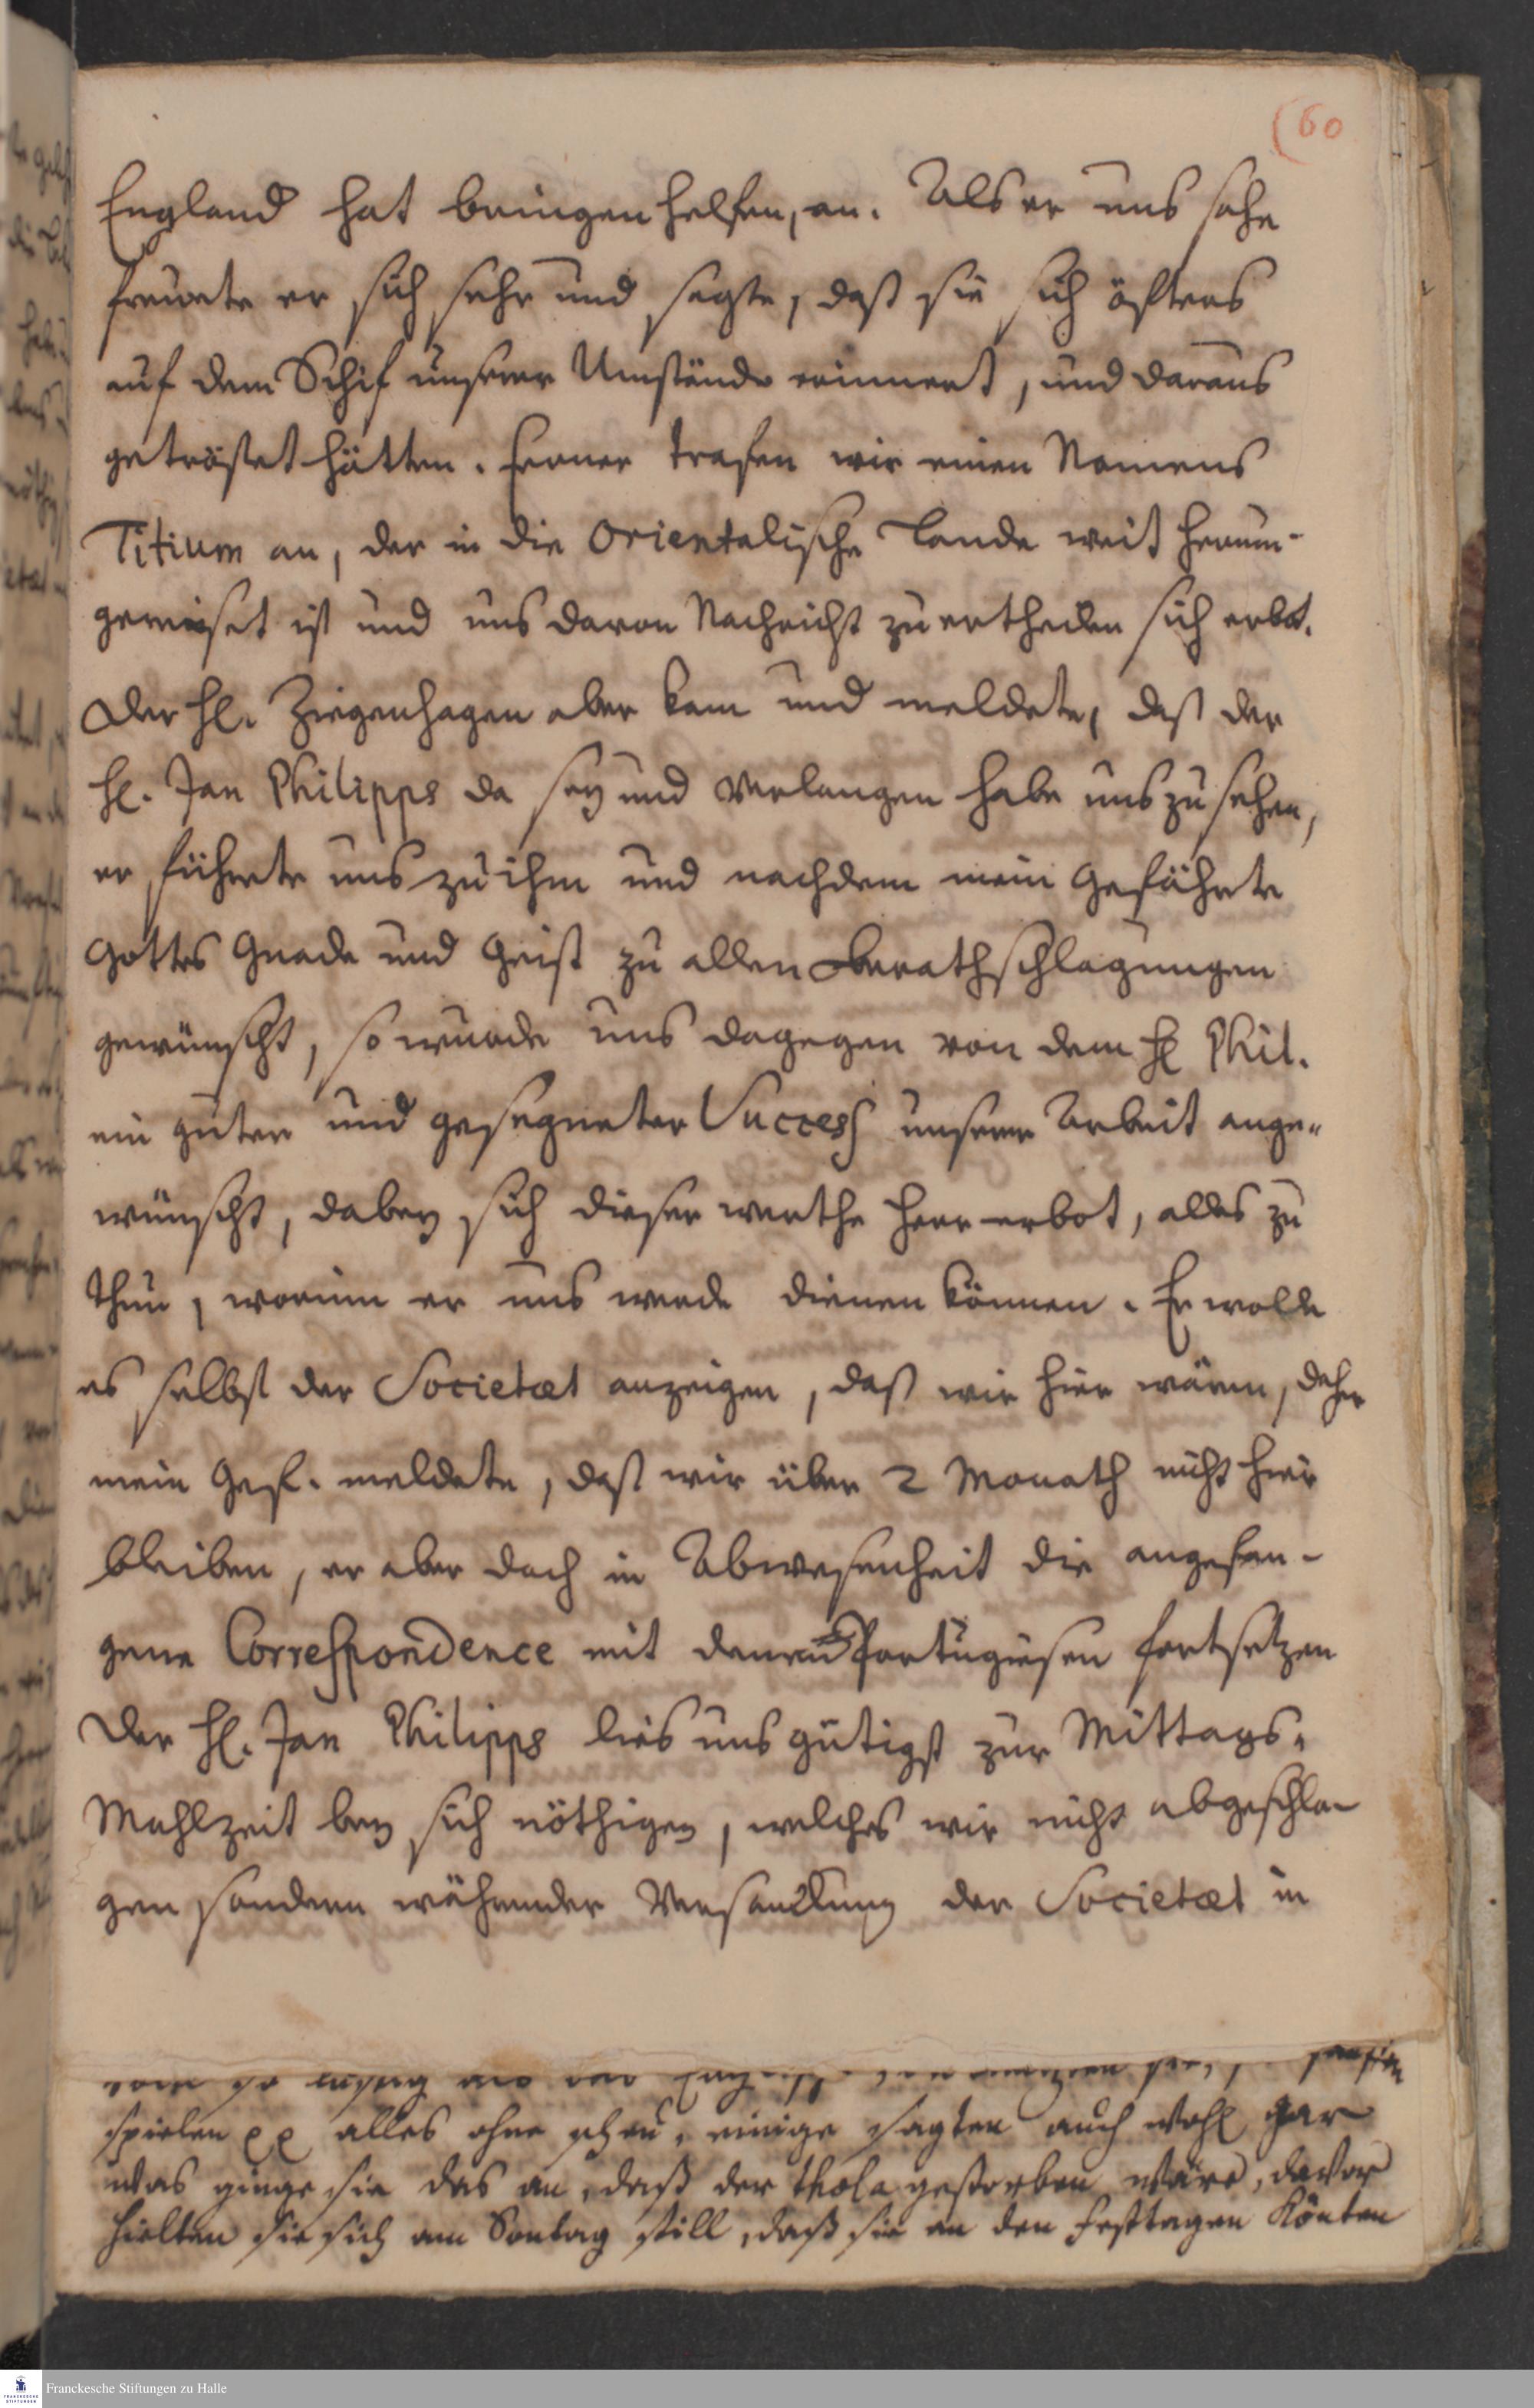 (60
England hat bringen helfen, an. Als er uns sahe
freuete er sich sehr und sagte, daß sie sich öfters
auf dem Schif unserer Umstände erinnert, und daraus
getröstet hätten. Ferner trafen wir einen Namens
Titium an, der in die Orientalische Lande weit herum-
gereiset ist und uns davon Nachricht zu ertheilen sich erbot.
Der Hl. Ziegenhagen aber kam und meldete, daß der
Hl. Jan Philipps da sey und Verlangen habe uns zu sehen,
er führete uns zu ihm und nachdem mein Gefährte
Gottes Gnade und Geist zu allen Berathschlagungen
gewünscht, so wurde uns dagegen von dem Hl Phil.
ein guter und gesegneter Success unserer Arbeit ange-
wünscht, dabey sich dieser werthe Herr erbot, alles zu
thun, worinn er uns werde dienen können. Er wolle
es selbst der Societæt anzeigen, daß wir hier wären, daher
mein Gef. meldete, daß wir über 2 Monath nicht hier
bleiben, er aber doch in Abwesenheit die angefan-
gene Correspondence mit denen Portugiesen fortsetzen
Der Hl. Jan Philipps lies uns gütigst zur Mittags-
Mahlzeit bey sich nöthigen, welches wir nicht abgeschla-
gen sondern währender Versamlung der Societæt in
spielen alles ohne scheu, einige sagten auch wohl gar
was ginge sie das an, daß der thola gestorben wäre, davor
hielten sie sich am Sontag still, daß sie an den Festtagen Könten
Franckesche Stiftungen zu Halle